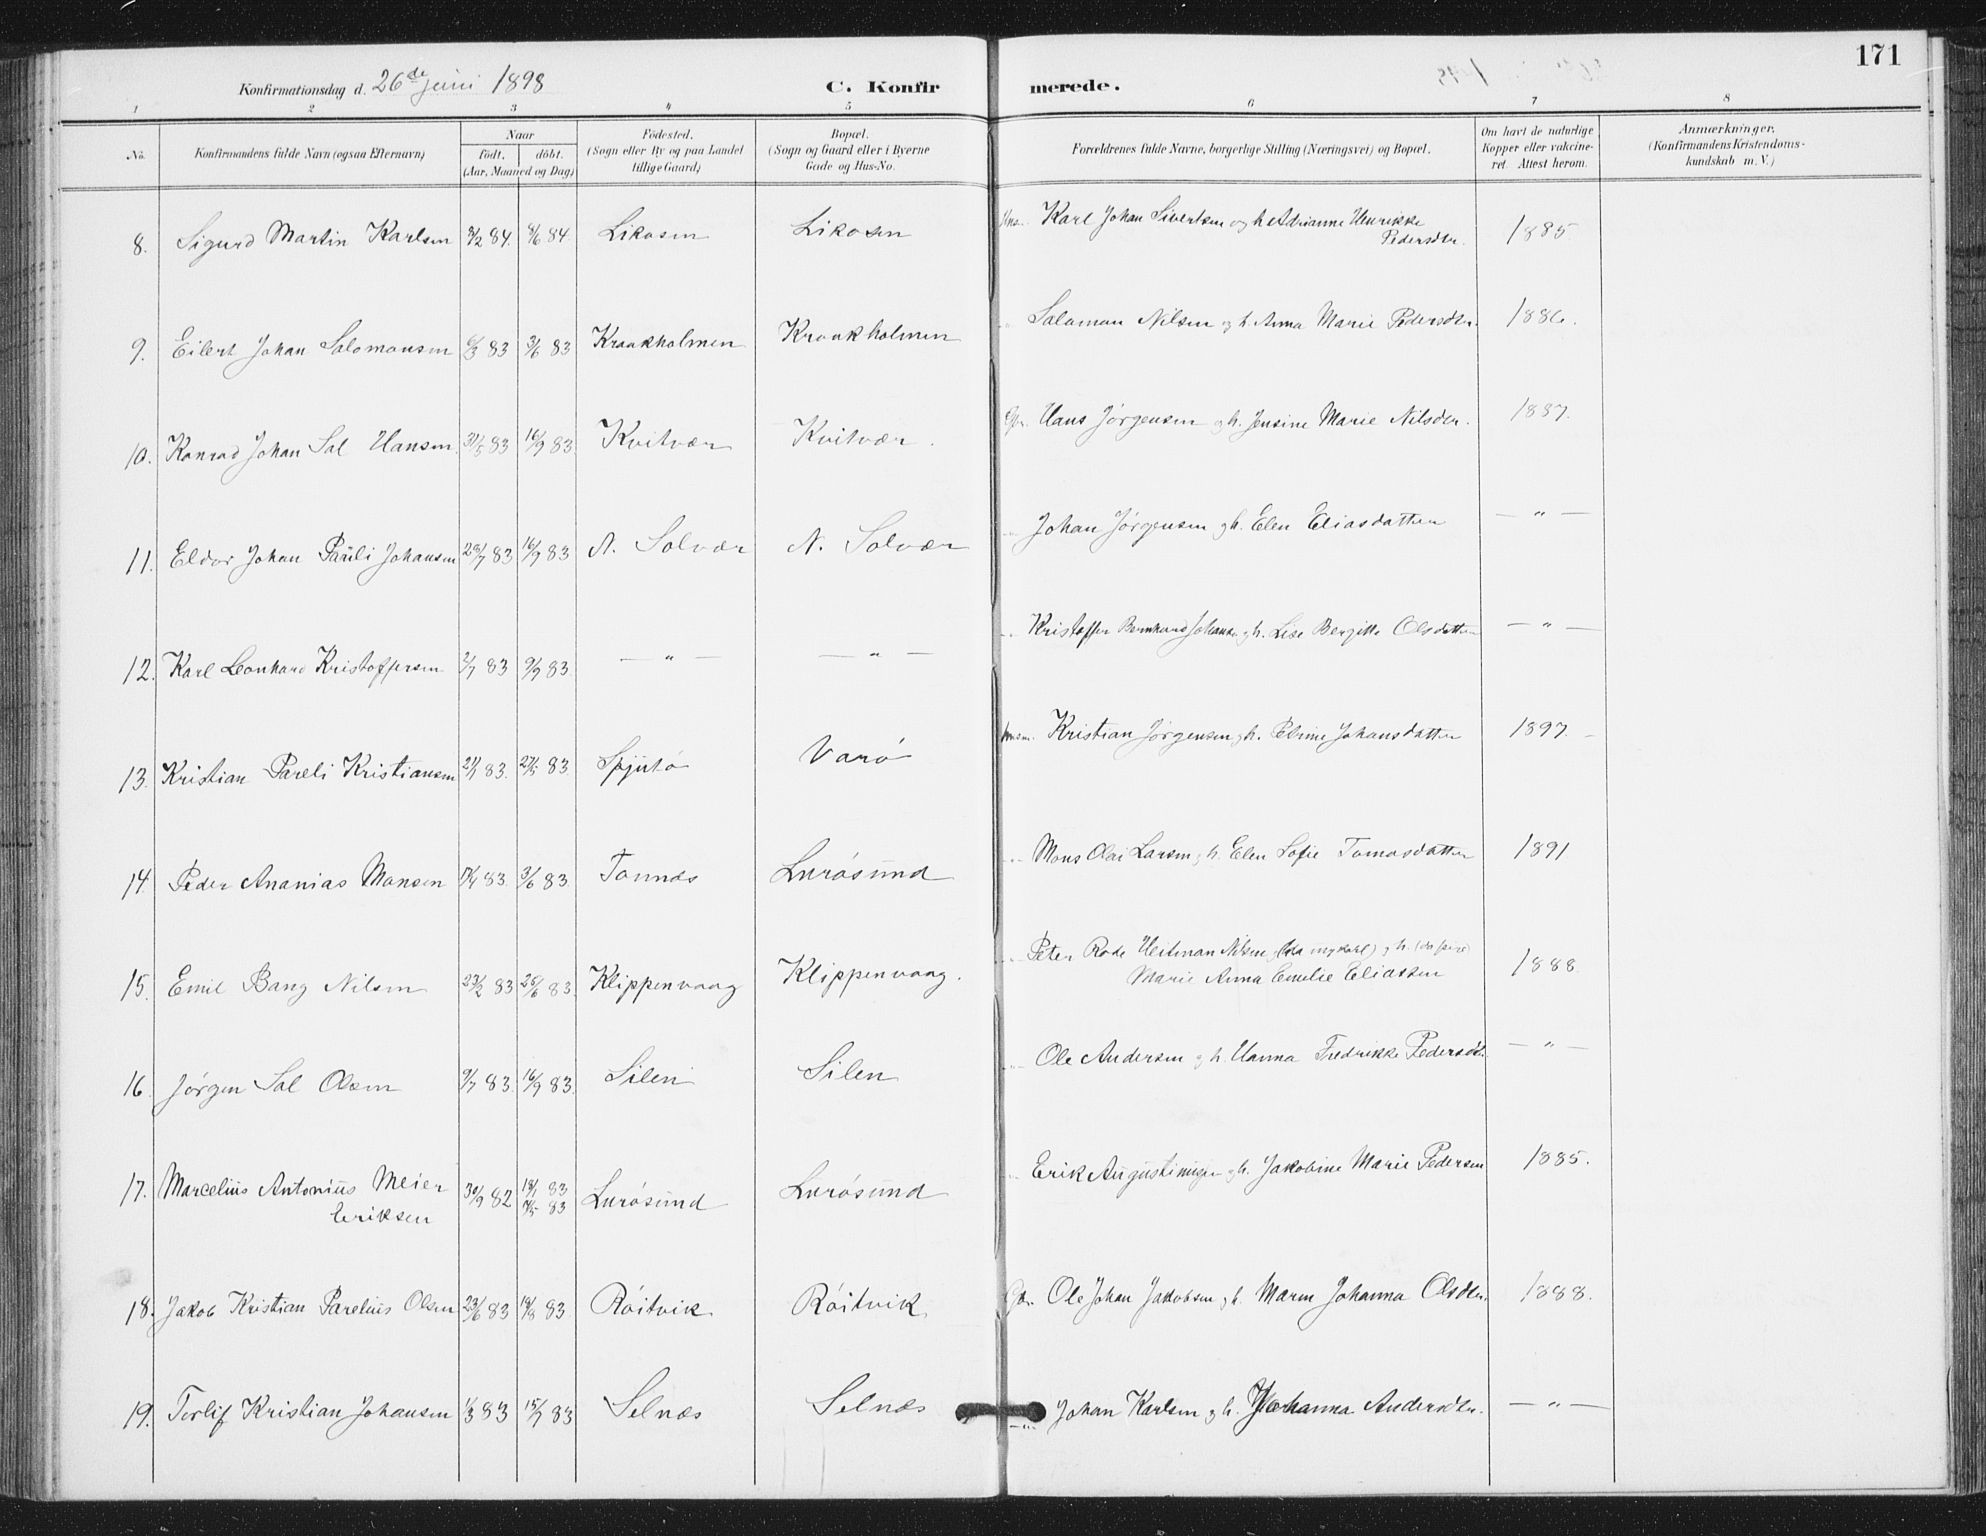 171
Konfirmationsdag d. 26de juni 1898
C. Konfirmerede.
1 2 3 4 5 6 7 8
No. Konfirmandens fulde Navn (ogsaa Efternavn) Naar födt. döbt. (Aar, Maaned og Dag) Födested. (Sogn eller By og paa Landet tillige Gaard) Bopæl. (Sogn og Gaard eller i Byerne Gade og Hus-No. Forældrenes fulde Navne, borgerlige Stilling (Næringsvei) og Bopæl. Om havt de naturlige Kopper eller vakcineret. Attest herom. Anmærkninger. (Konfirmandens Kristendomskundskab m. V.)
8. Sigurd Martin Karlsen 3/2 84. 8/6 84. Likosen Likosen Karl Johan Sivertsen og h. Adrianne Henrikke Pedersdtr. 1885
9. Eilert Johan Salomonsen 6/3 83 3/6 83 Kraakholmen Kraakholmen Salamon Nilsen og h. Anna Marie Pedersdtr. 1886.
10. Konrad Johan Sal Hansen 31/5 83 16/9 83 Kvitvær Kvitvær. Gbr. Hans Jörgensen og h. Jensine Marie Nilsdtr. 1887.
11. Eldor Johan Pauli Johansen 28/7 83 16/9 83 N. Solvær N. Solvær Johan Jörgensen og h. Elen Eliasdatter — " —
12. Karl Leonhard Kristoffersen 2/7 83 9/9 83 — " — — " — Kristoffer Bernhard Johansen og h. Lise Bergitte Olsdatter — " —
13. Kristian Pareli Kristiansen 21/1 83. 27/5 83. Spjutö Varö Kristian Jörgensen og h. Johansdatter 1897.
14. Peder Ananias Monsen 17/4 83. 3/6 83. Tonnes Lurösund Mons Olai Larsen og h. Elen Sofie Tomasdatter 1891
15. Emil Bang Nilsen 23/2 83 28/6 83. Klippenvaag Klippenvaag. Peter Rode Heitman Nilsen og h. Marie Anna Emelie Eliassen 1888.
16. Jörgen Sal Olsen 9/7 83. 16/9 83. Silen Silen Ole Andersen og h. Hanna Fredrikke Pedersdt. — " —
17. Marcelius Antonius Meier Eriksen 30/9 82 18/1 83 83 Lurösund Lurösund Erik og h. Jakobine Marie Pedersen 1885.
18. Jakob Kristian Parelius Olsen 23/6 83 19/8 83. Röitvik Röitvik Gbr. Ole Johan Jakobsen og h. Maren Johanna Olsdtr. 1888.
19. Torlif Kristian Johansen 1/3 83 15/7 83 Selnæs Selnæs — " — Johan Karlsen og h. Johanna Andersdtr. — " —